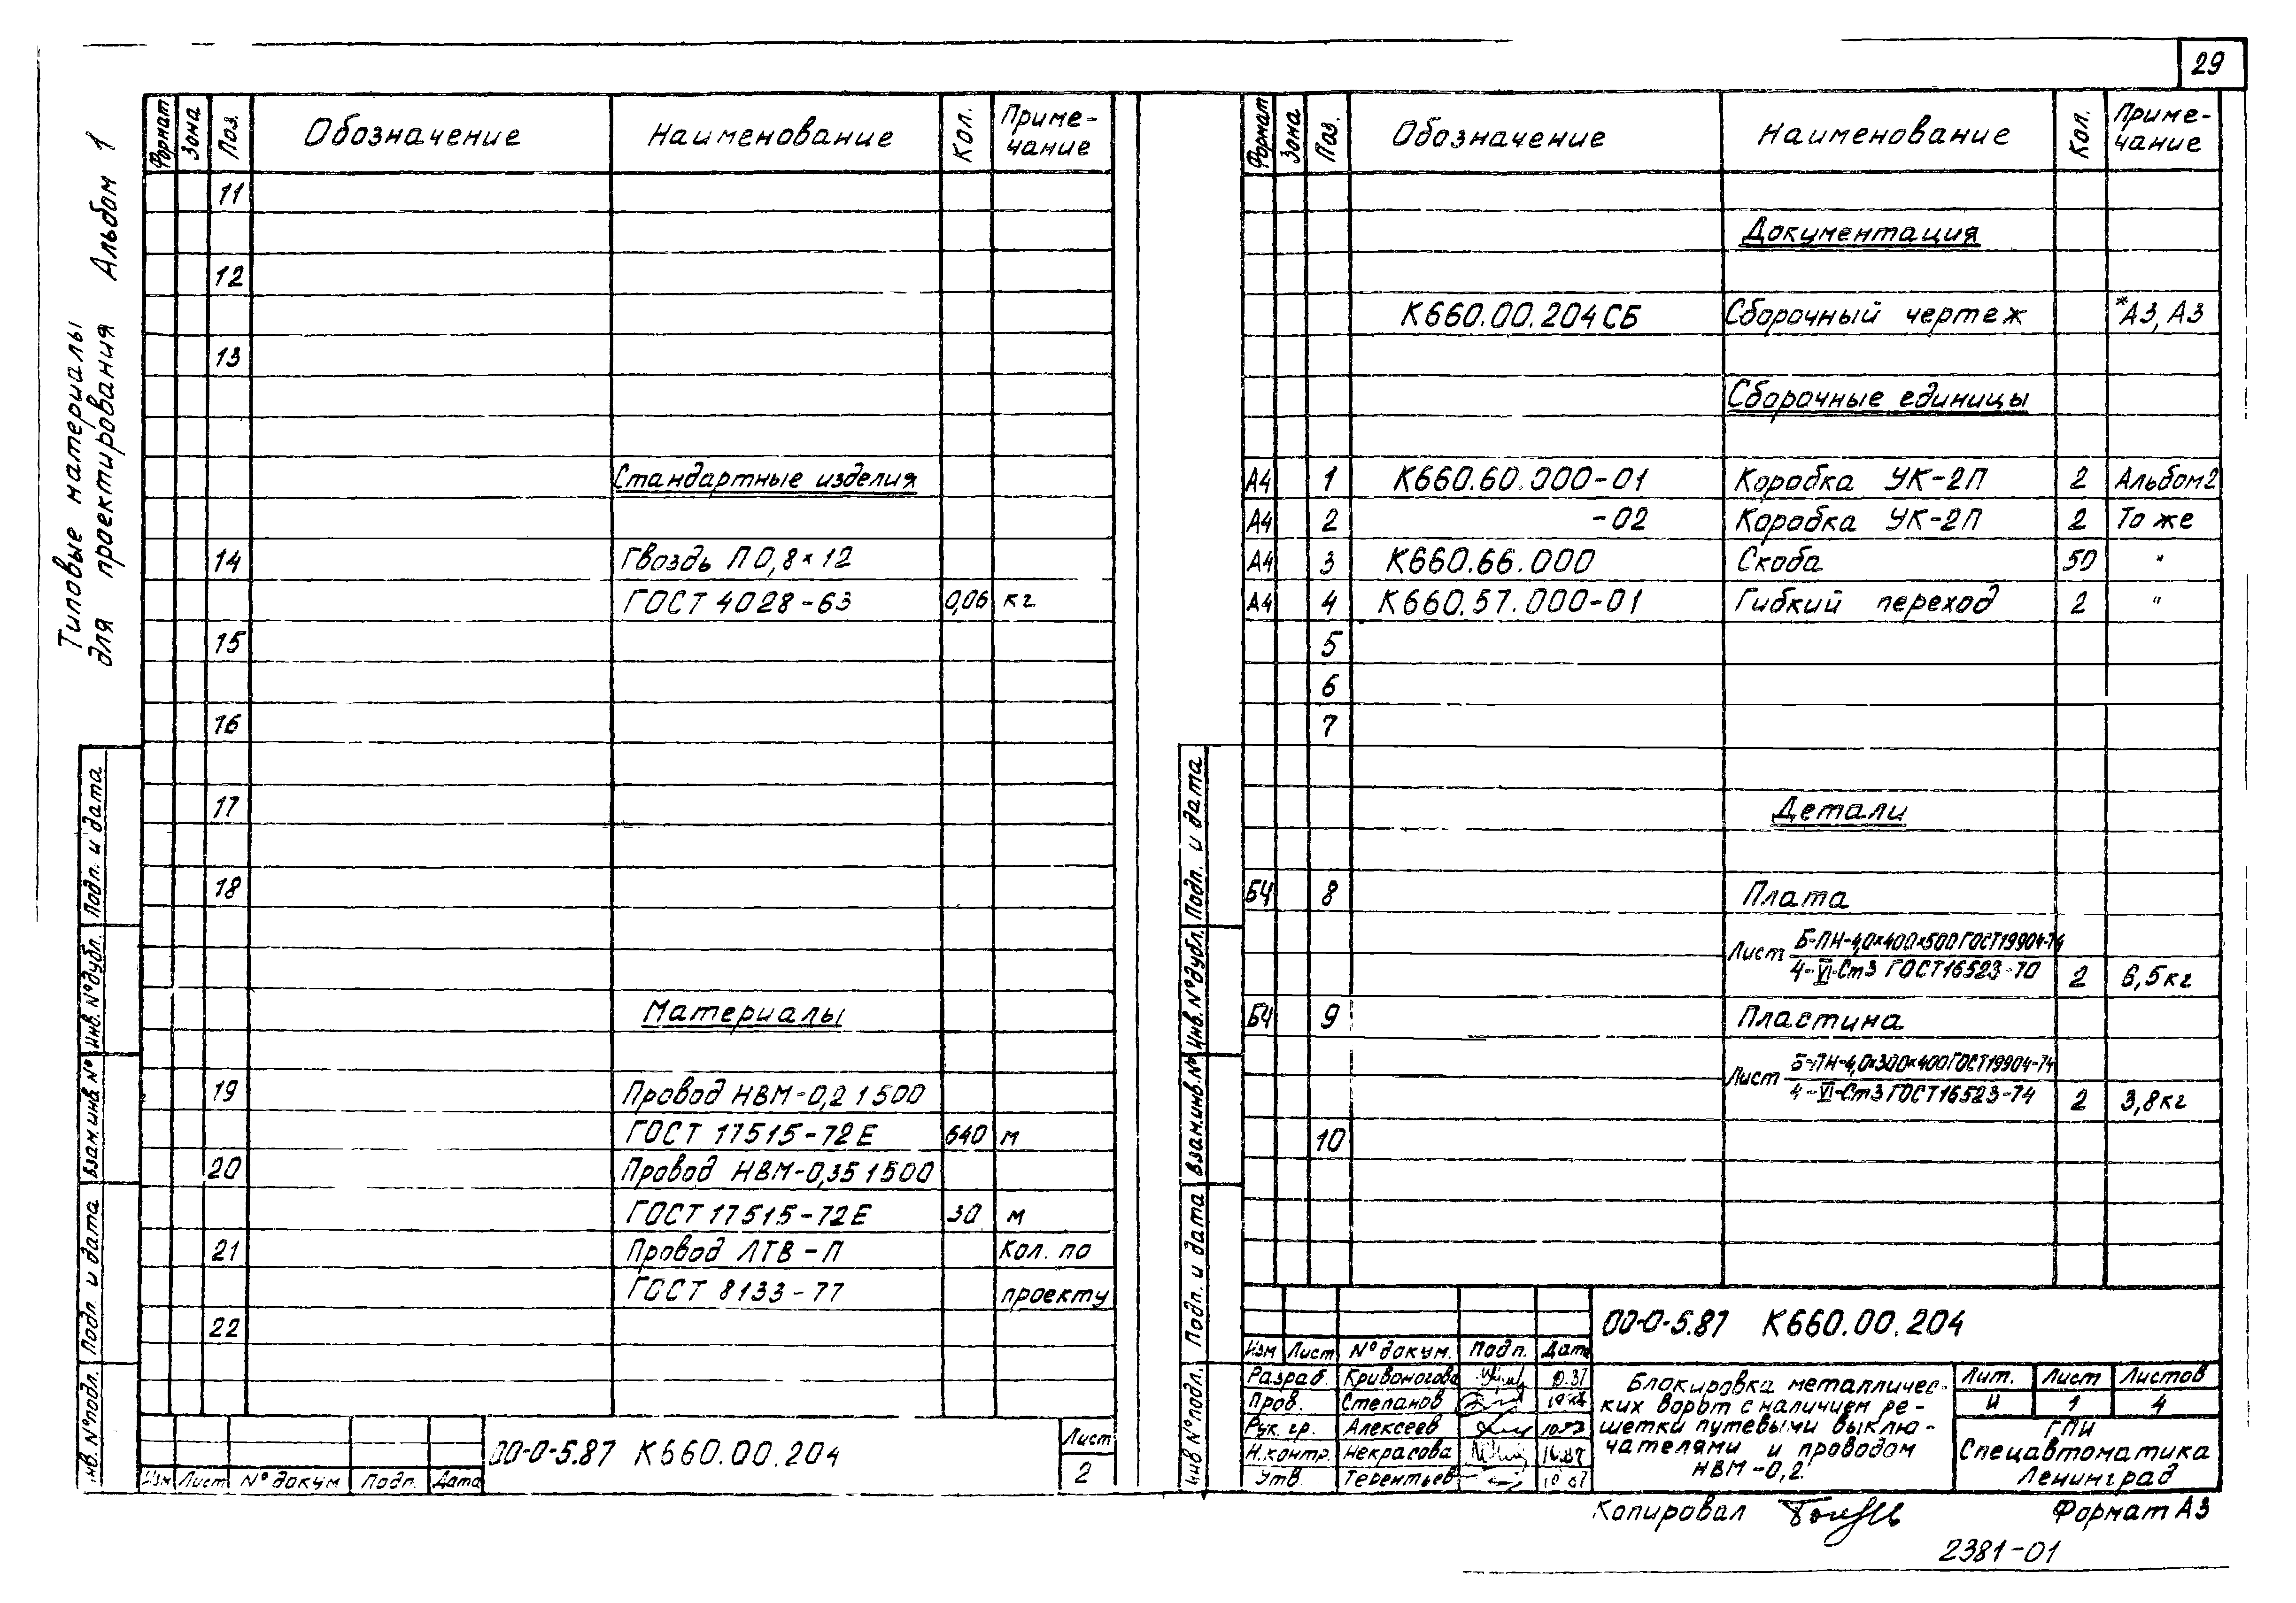 29
Типовые материалы
для проектирования Альбом 1
Формат Зона Поз. Обозначение Наименование Кол. Приме-
чание
11
12
13
Стандартные изделия
14 Гвоздь П 0,8×12
ГОСТ 4028-63 0,06 кг
15
16
17
18
Материалы
19 Провод НВМ-0,2 1 500
ГОСТ 17515-72Е 640 м
20 Провод НВМ-0,35 1 500
ГОСТ 17515-72Е 30 м
21 Провод ЛТВ-П Кол. по
ГОСТ 8133-77 проекту
22
Подп. и дата
Инв. № дубл.
Взам. инв. №
Подп. и дата
Инв. № подл.
00-0-5.87 К660.00.204
Изм Лист № докум Подп. Дата
Лист
2
Формат Зона Поз. Обозначение Наименование Кол. Приме-
чание
Документация
К660.00.204СБ Сборочный чертеж *А3, А3
Сборочные единицы
А4 1 К660.60.000-01 Коробка УК-2П 2 Альбом 2
А4 2 -02 Коробка УК-2П 2 То же
А4 3 К660.66.000 Скоба 50 "
А4 4 К660.57.000-01 Гибкий переход 2 "
5
6
7
Детали
БЧ 8 Плата
Лист Б-ПН-4,0×400×500 ГОСТ19904-74
4-VI-Ст3 ГОСТ16523-70 2 6,5кг
БЧ 9 Пластина
Лист Б-ПН-4,0×300×400 ГОСТ19904-74
4-VI-Ст3 ГОСТ16523-74 2 3,8кг
10
Подп. и дата
Инв. № дубл.
Взам. инв. №
Подп. и дата
Инв № подл.
00-0-5.87 К660.00.204
Изм Лист № докум. Подп. Дата
Разраб. Кривоногова
Пров. Степанов
Рук. гр. Алексеев
Н.контр. Некрасова
Утв. Терентьев
Блокировка металличес-
ких ворот с наличием ре-
шетки путевыми выклю-
чателями и проводом
НВМ-0,2.
Лит. Лист Листов
И 1 4
ГПИ
Спецавтоматика
Ленинград
Копировал Формат А3
2381-01